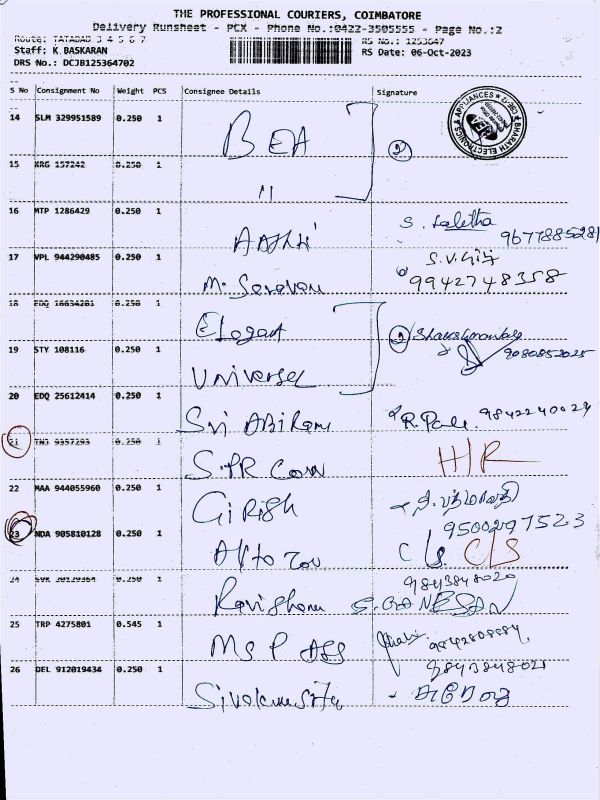 THE PROFESSIONAL COURIERS, COIMBATORE
Delivery Runsheet - PCX - Phone No.:0422-3505555 - Page No.:2
Route: TATABAD 3 4 5 6 7
RS No.: 1253647
Staff: K.BASKARAN
RS Date: 06-Oct-2023
DRS No.: DCJB125364702
S No Consignment No Weight PCS Consignee Details Signature
14 SLM 329951589 0.250 1 BEA 2
BHARATH ELECTRONICS & APPLIANCES
15 KRG 157242 0.250 1 "
16 MTP 1286429 0.250 1 S. Laletha 9677885281
17 VPL 944290485 0.250 1 M. 9942748358
18 EDQ 16634281 0.250 1 2
19 STY 108116 0.250 1 Universel 9080852025
20 EDQ 25612414 0.250 1 Sri Abirami 9842240024
21 TNJ 9357293 0.250 1 H/R
22 MAA 944055960 0.250 1 Girish 9500297523
23 NDA 905810128 0.250 1 C/S C/S
24 SVK 20129364 0.250 1 9843848020 S. GANESAN
25 TRP 4275801 0.545 1 Ms P
26 DEL 912019434 0.250 1 9843848021